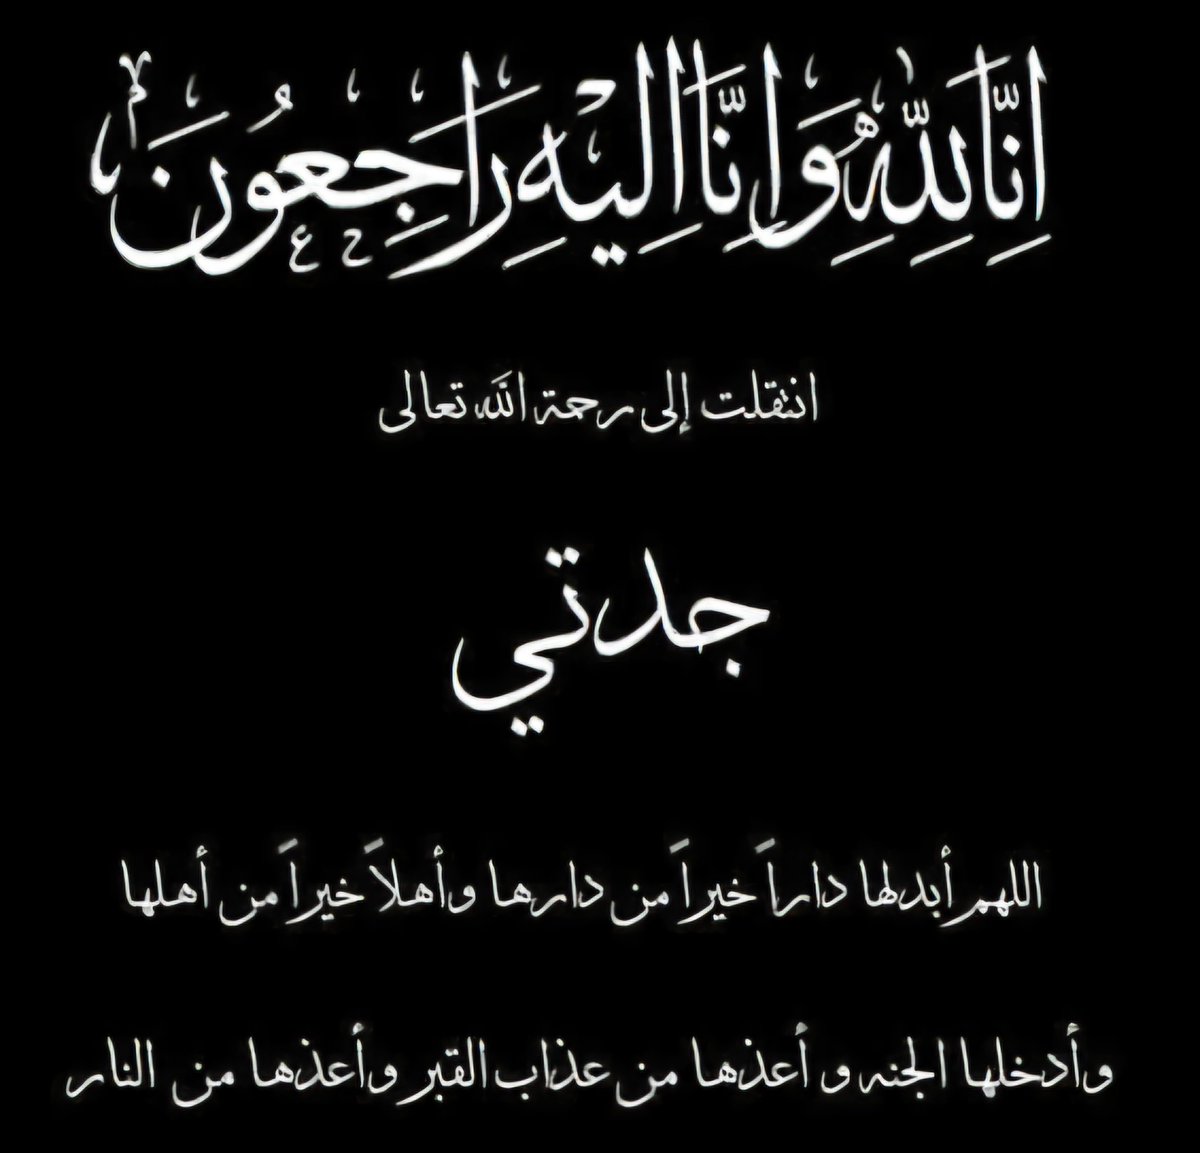 اِنَّا لِلّٰهِ وَاِنَّا اِلَيْهِ رَاجِعُونَ
انتقلت إلى رحمة الله تعالى
جدتي
اللهم أبدلها داراً خيراً من دارها وأهلاً خيراً من أهلها
وأدخلها الجنه و أعذها من عذاب القبر وأعذها من النار